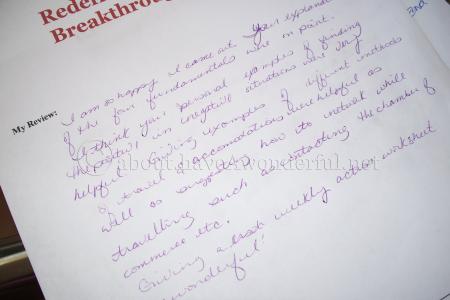 Redefi
Breakthrough
My Review:
I am so happy I came out. Your explana
of the four fundamentals were on point.
I think your personal examples of finding
the positive in negative situations were very
helpful. Giving examples of different methods
of travel & accomodations were helpful as
well as suggesting how to network while
travelling such as contacting the chamber of
commerce etc.
Giving a weekly action worksheet
wonderful!
about.have-wonderful.net